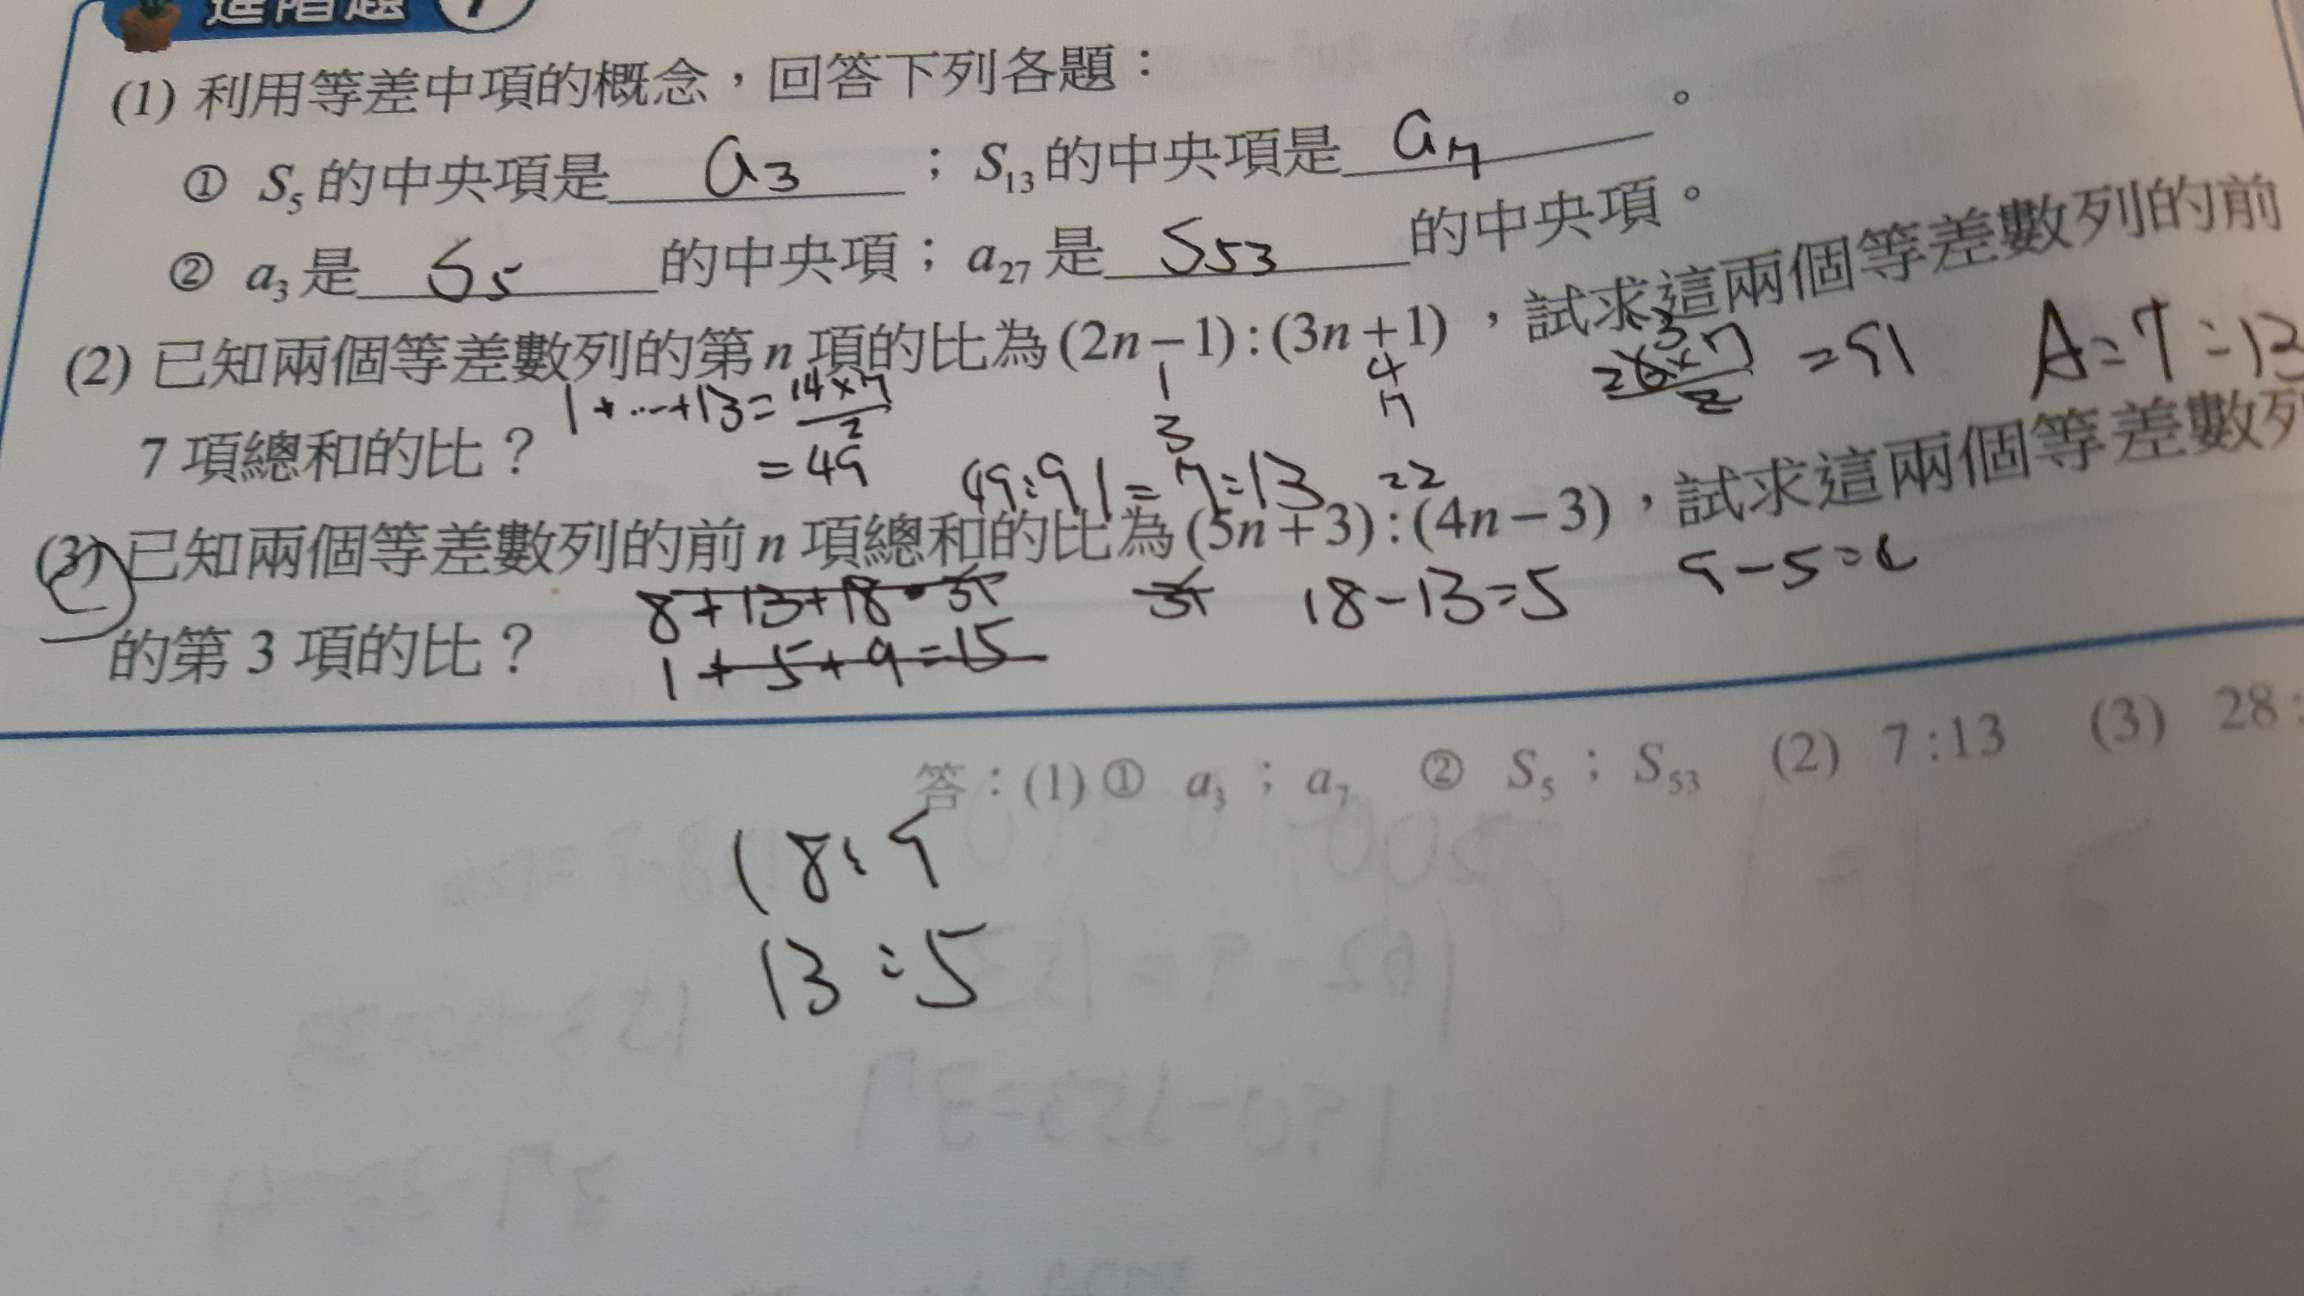 進階題 7
(1) 利用等差中項的概念，回答下列各題：
① S₅的中央項是 a₃ ；S₁₃的中央項是 a₇ 。
② a₃是 S₅ 的中央項；a₂₇是 S₅₃ 的中央項。
(2) 已知兩個等差數列的第n項的比為(2n−1):(3n+1)，試求這兩個等差數列的前
1 4
3 7
=91 A=7:13
7項總和的比？ 1+…+13=14×7/2
=49 49:91=7:13 22
(3) 已知兩個等差數列的前n項總和的比為(5n+3):(4n−3)，試求這兩個等差數列
8+13+18 18-13=5
的第3項的比？ 1+5+9=15
答：(1)① a₃；a₇ ② S₅；S₅₃ (2) 7:13 (3) 28:
18:9
13:5